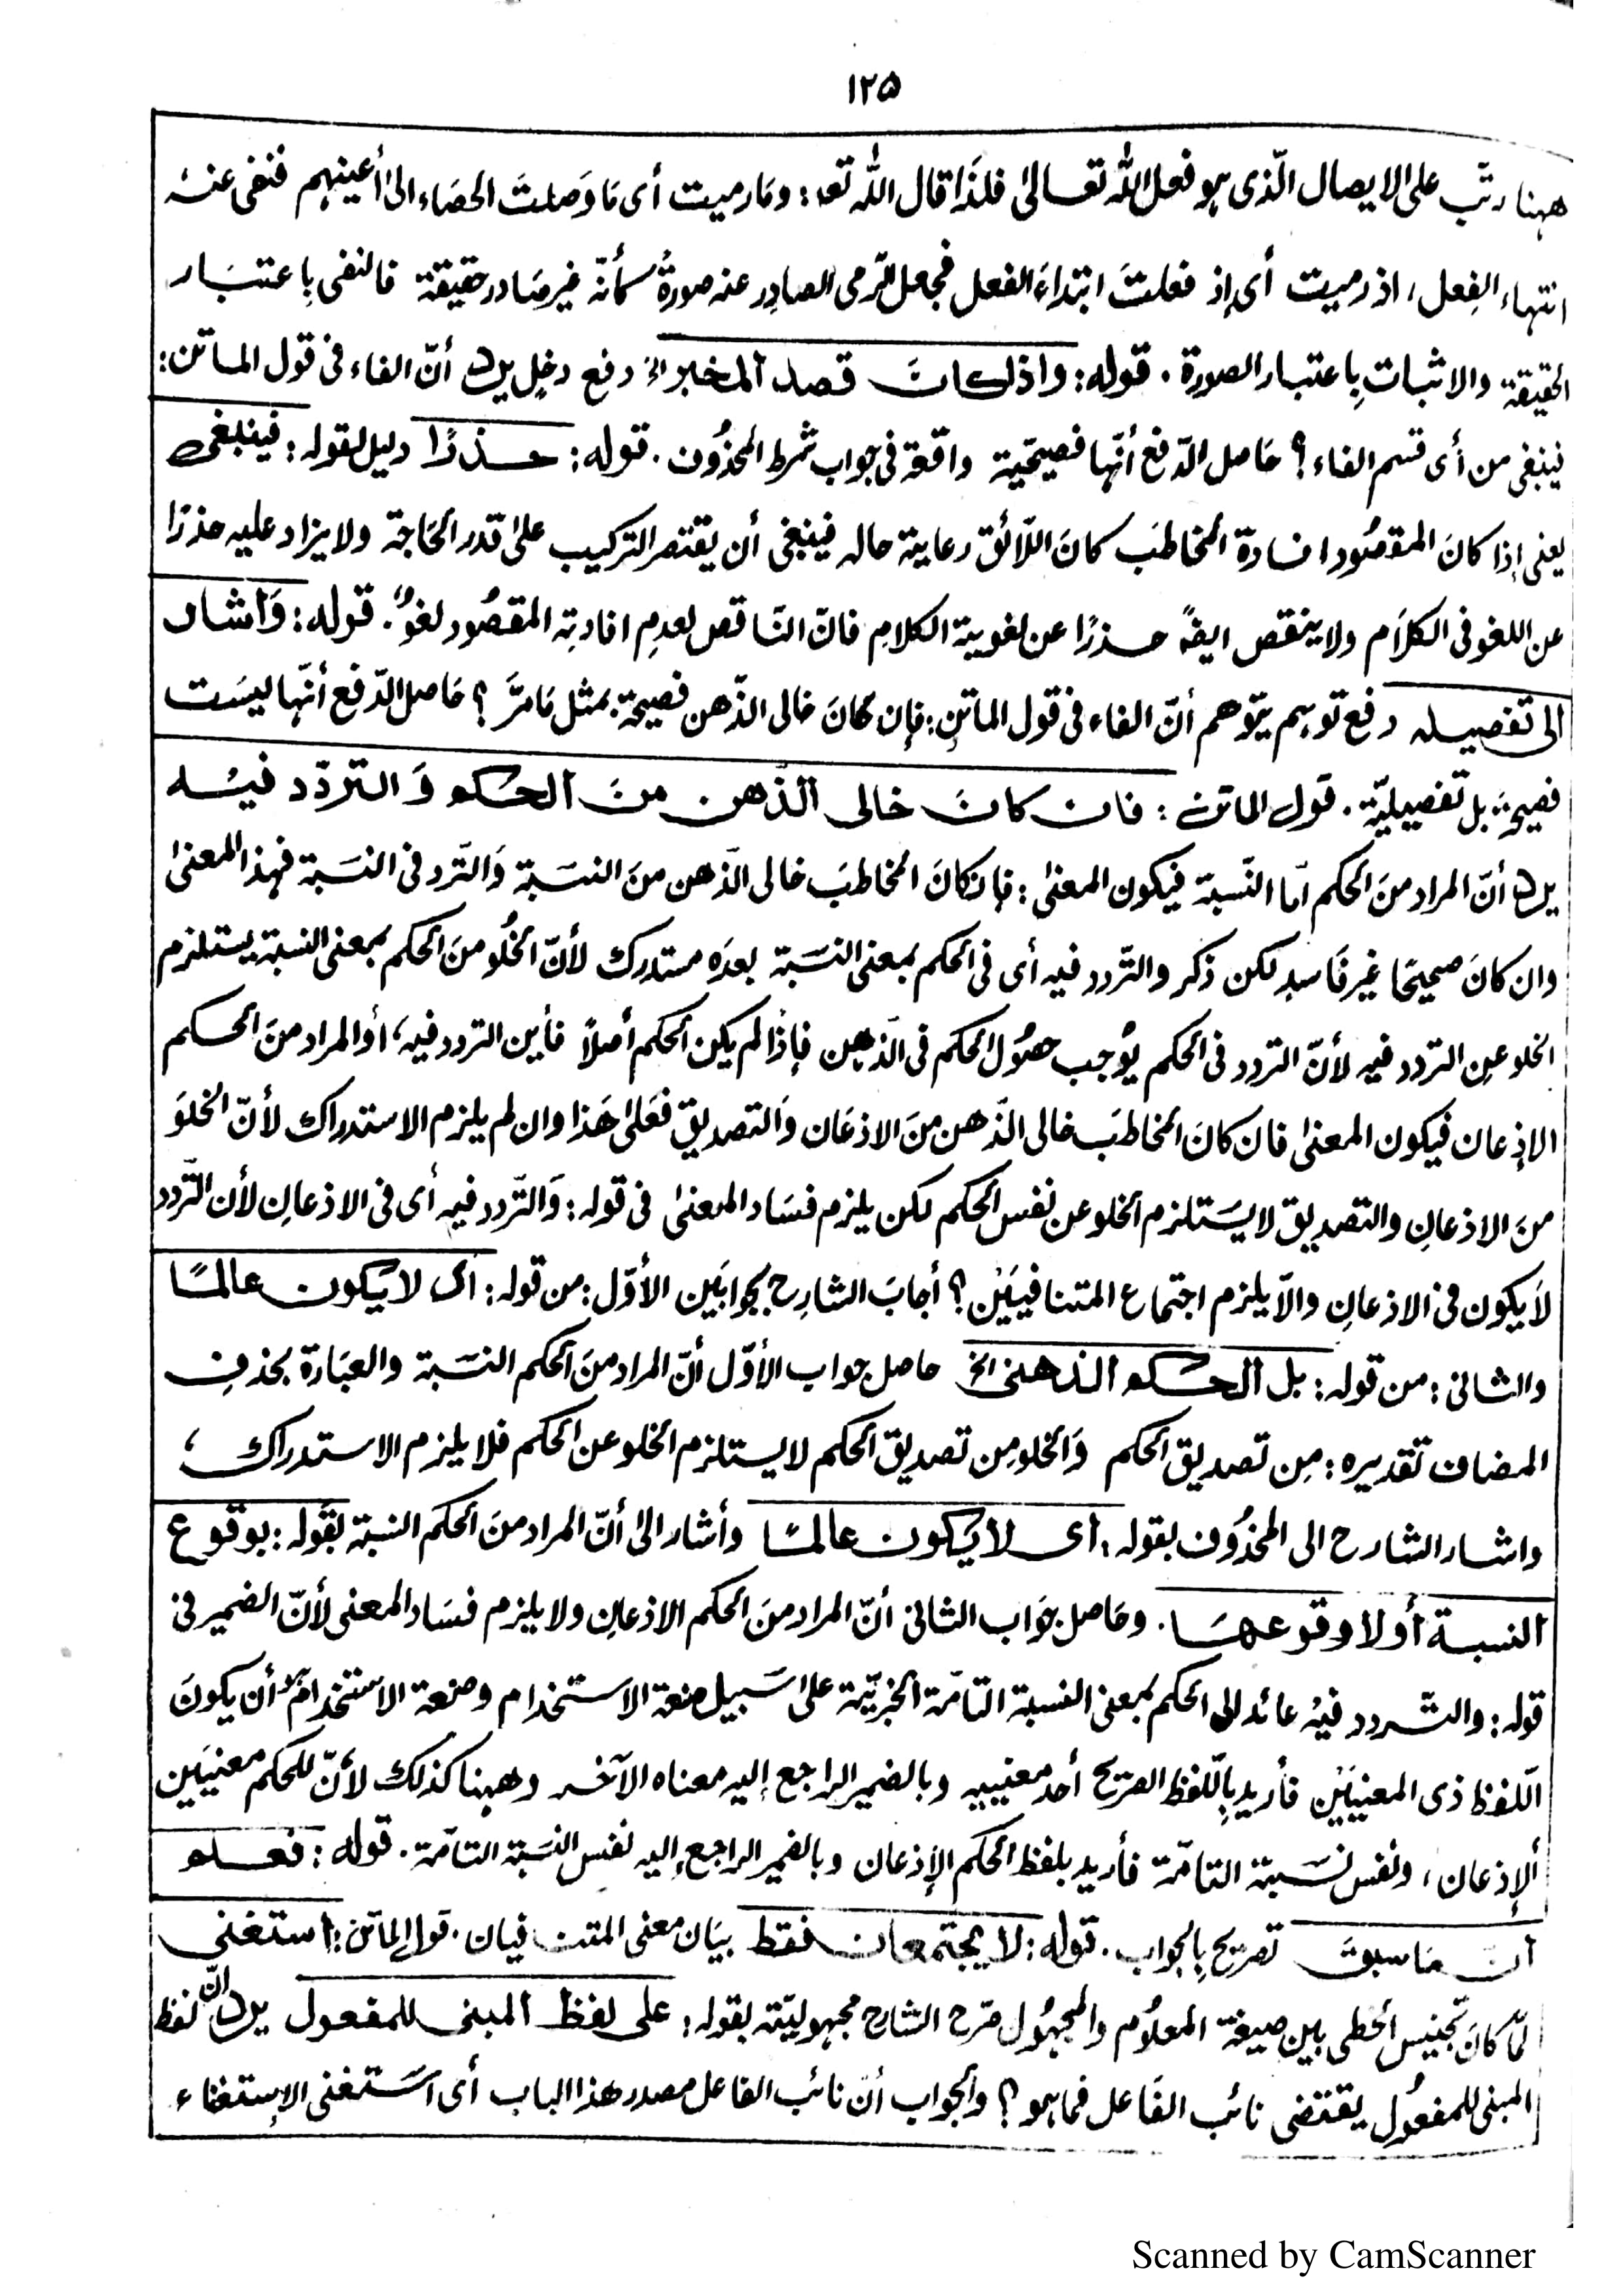 ١٢٥
ههنا رتّب على الايصال الّذى هو فعل الله تعالىٰ فلذا قال الله تعـ: ومَا رميت أى مَا وَصلتَ الحصَاء الىٰ أعينهم فنفى عنه
انتهاء الفِعل، اذ رميت أى إذ فعلتَ ابتداءَ الفعل فجعل الرّمى الصادِر عنه صورةً كأنّه غير صَادر حقيقة فالنفى بِاعتبَار
الحقيقة والاثبات بِاعتبار الصورة. قوله: واذ كان قصد المخبر الخ دفع دخلٍ يرد أنّ الفاء فى قول الماتن:
فينبغى من أى قسم الفاء؟ حَاصل الدّفع أنّها فصيحيّة واقعة فى جواب شرط المحذُوف. قوله: حـذرًا دليل لقوله: فينبغى
يعنى إذا كانَ المقصُود افادة المخاطَب كانَ اللّائق رعاية حاله فينبغى أن يقتصر التركيب علىٰ قدر الحَاجة ولا يزاد عليه حذرًا
عن اللغو فى الكلَام ولا ينقص ايضً حـذرًا عن لغوية الكلامِ فانّ النّاقص لعدمِ افادتِه المقصُود لغوٌ. قوله: وَأشار
الى تفصيله دفع توهم يتوهم أنّ الفاء فى قول الماتنِ: فإن كانَ خالى الذّهن فصيحة بمثل مَا مرَّ؟ حَاصل الدّفع أنّها ليسَت
فصيحة بل تفصيليّة. قول الماتن: فان كانَ خالى الذّهن منَ الحكم وَ التردّد فيه
يرد أنّ المراد منَ الحكم امّا النّسبة فيكون المعنىٰ: فإن كانَ المخاطبَ خالى الذّهن منَ النسَبة وَالتّرد فى النسَبة فهذا المعنىٰ
وان كانَ صحيحًا غير فَاسدٍ لكن ذكر والتّردد فيه أى فى الحكم بمعنى النسَبة بعدَه مستدرك لأنّ الخُلو منَ الحكم بمعنى النسبة يستلزم
الخلو عنِ التردد فيه لأنّ التردد فى الحكم يُوجب حصُول الحكم فى الذّهن فإذا لم يكن الحكم أصلاً فأين التردد فيه، أو المراد منَ الحكم
الإذعان فيكون المعنىٰ فان كانَ المخاطبَ خالى الذّهن منَ الاذعَان وَالتصديق فعَلىٰ هَذا وان لم يلزم الاستدراك لأنّ الخلوَ
منَ الاذعانِ والتصديق لا يسَتلزم الخلو عن نفس الحكم لكن يلزم فسَاد المعنىٰ فى قوله: وَالتّردد فيه أى فى الاذعانِ لأن التّردد
لَا يكون فى الاذعانِ والّا يلزم اجتماع المتنافيَيْن؟ أجابَ الشارِح بجوابَين الأوّل: من قوله: اى لا يَكون عالمًا
والثانى: من قوله: بل الحكم الذهنى الخ حاصل جواب الأوّل أنّ المراد منَ الحكم النسَبة والعبَارة بحذفِ
المضاف تقديره: مِن تصديق الحكم وَالخلو مِن تصديق الحكم لا يستلزم الخلو عن الحكم فلا يلزم الاستدراك،
واشار الشارح الى المحذُوف بقوله: اى لا يَكون عالمًا وأشار الىٰ أنّ المراد منَ الحكم النسبة بقَوله: بوقوع
النسبة أو لا وقوعهَا. وحَاصل جوَاب الثانى أنّ المراد منَ الحكم الاذعانِ ولا يلزم فسَاد المعنى لأنّ الضمير فى
قوله: والتّردد فيْه عائد الى الحكم بمعنى النسبة التامّة الخبريّة علىٰ سَبيل صنعة الاستخدام وصنعة الاستخدام أن يكونَ
اللّفظ ذى المعنيَيْن فأريد بِاللّفظ الصّريح أحد معنييه وبالضميرِ الراجع إليه معناه الآخر وههنا كذلك لأنّ للحكم معنيَين
ألإذعان، ونفس نسَبة التامّة فأريد بلفظ الحكم الإذعان وبالضمير الراجع إليه نفس النسَبة التامّة. قوله: فعلم
انّ مَا سبقَ تصريح بِالجواب. قوله: لا يجتمعان فقط بيَان معنى المتنافيان. قول الماتن: استغنى
لمّا كانَ تجنيس الخطى بين صيغة المعلُوم والمجهُول صرّح الشارح مجهوليّته بقوله: على لفظ المبنى للمفعول يرد انّ لفظ
المبنى للمفعُولِ يقتضى نائب الفَاعل فما هو؟ والجواب أن نائب الفاعل مصدر هذا الباب أى اسَتغنى الإستغناء
Scanned by CamScanner